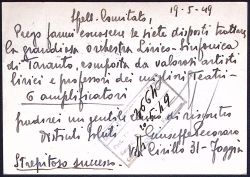 19-5-49
Spett. Comitato,
Prego farmi conoscere se siete disposti trattare
la grandiosa orchestra Lirico-Sinfonica
di Taranto, composta da valorosi artisti
lirici e professori dei migliori Teatri -
6 amplificatori
Gradirei un gentile cenno di risposta
Distinti saluti
Giuseppe Secoraro
Via Cirillo 31 - Foggia
Strepitoso successo.